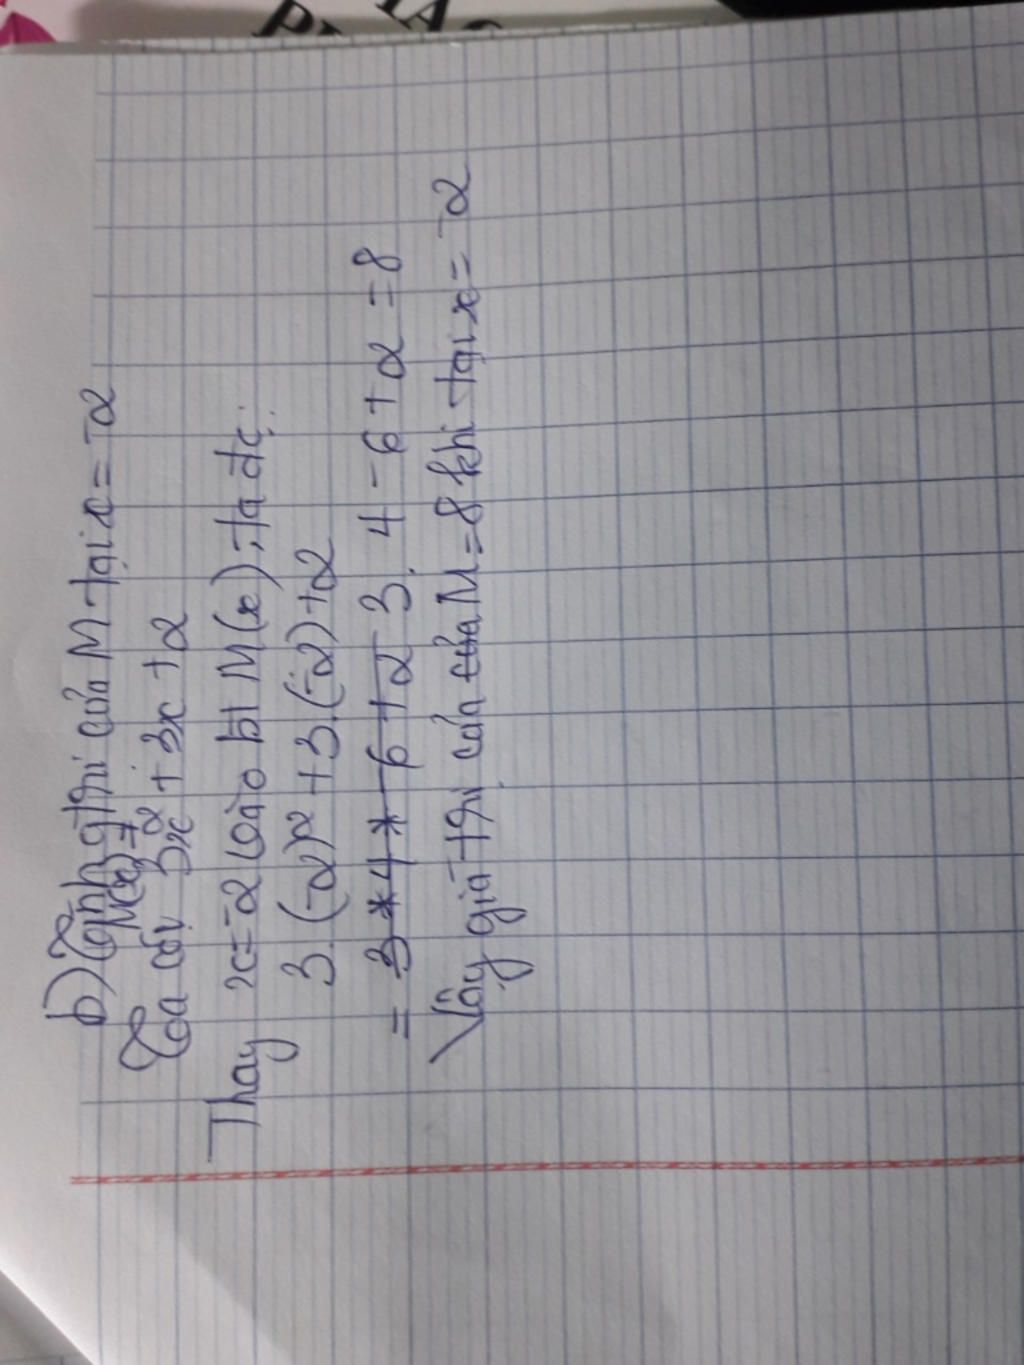 b) Tính gtri của M tại x = -2
Ta có: M(x) = 3x² + 3x + 2
Thay x = -2 vào bt M(x), ta đc:
3.(-2)² + 3.(-2) + 2
= 3.4 - 6 + 2 = 8
Vậy giá trị của của M = 8 khi tại x = -2